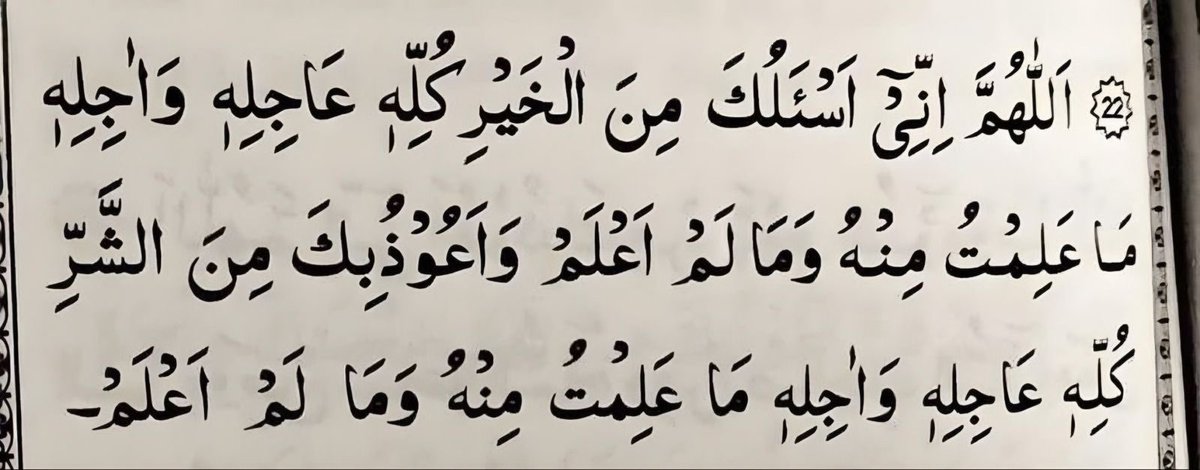 22 اَللّٰهُمَّ اِنِّیْٓ اَسْئَلُكَ مِنَ الْخَيْرِ كُلِّهٖ عَاجِلِهٖ وَاٰجِلِهٖ
مَا عَلِمْتُ مِنْهُ وَمَا لَمْ اَعْلَمْ وَاَعُوْذُبِكَ مِنَ الشَّرِّ
كُلِّهٖ عَاجِلِهٖ وَاٰجِلِهٖ مَا عَلِمْتُ مِنْهُ وَمَا لَمْ اَعْلَمْ۔